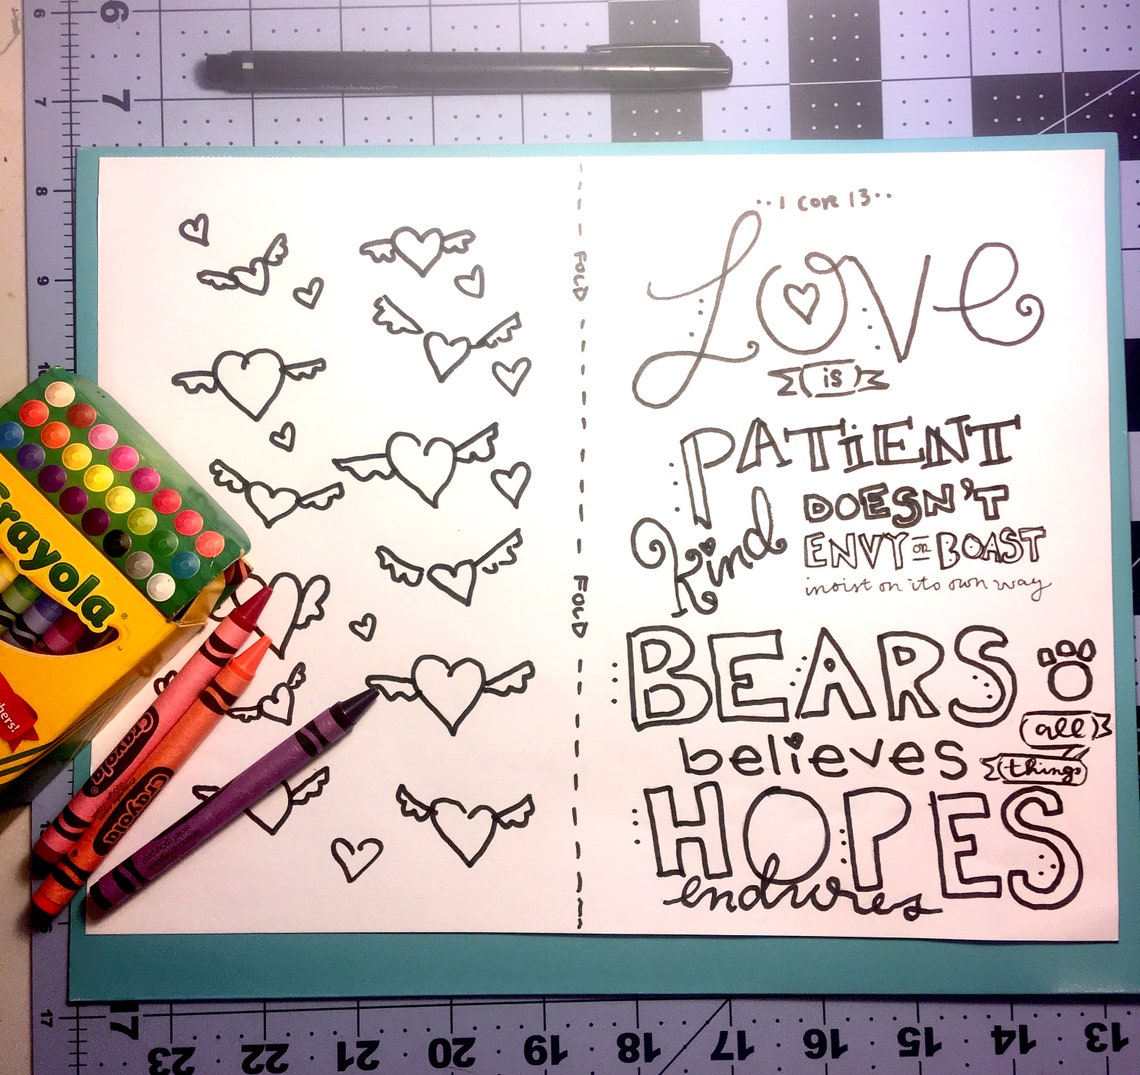 ··1 core 13··
LOVE
is
PATIENT
Kind
DOESN'T
ENVY or BOAST
insist on its own way
BEARS
all
believes
things
HOPES
endures
FOLD
FOLD
Crayola
Crayola
Crayola
6
7
8
9
17
6
7
17
23 22 21 20 19 18 17 16 15 14 13